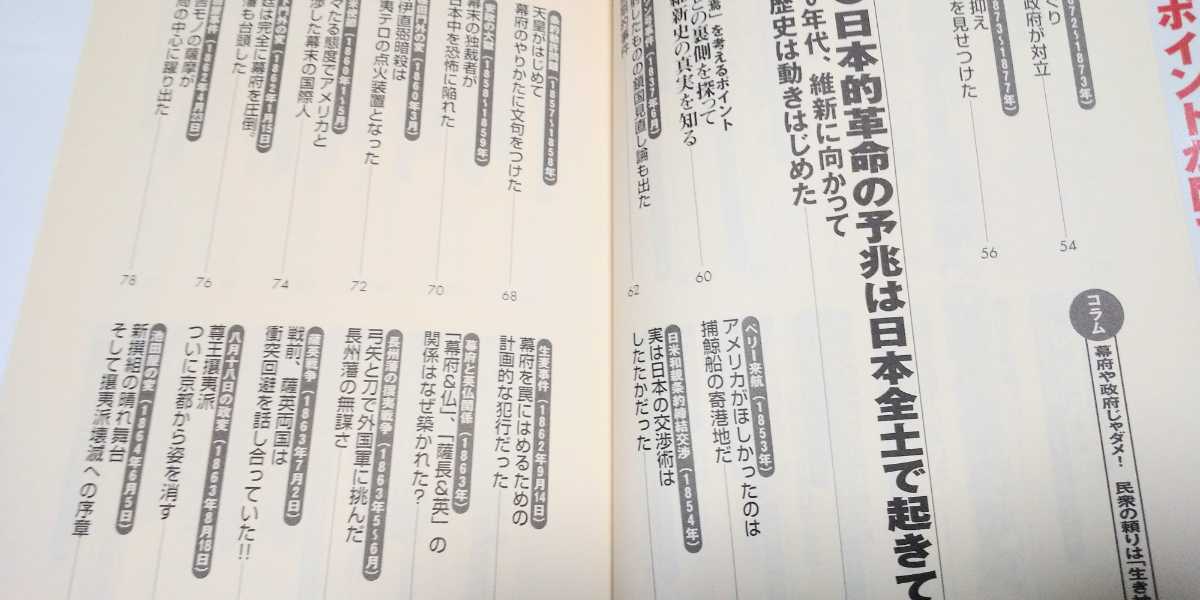 ポイントが
872〜1873年)
政府が対立
54
1873〜1877年)
抑え
を見せつけた
56
コラム
幕府や政府じゃダメ! 民衆の頼りは「生き
日本的革命の予兆は日本全土で起きて
0年代、維新に向かって
歴史は動きはじめた
」を考えるポイント
との裏側を探って
維新史の真実を知る
60
ン号事件(1837年6月)
したものの鎖国見直し論も出た
62
ペリー来航(1853年)
アメリカがほしかったのは
捕鯨船の寄港地だ
日米和親条約締結交渉(1854年)
実は日本の交渉術は
したたかだった
(1857〜1858年)
天皇がはじめて
幕府のやりかたに文句をつけた
68
の大獄(1858〜1859年)
幕末の独裁者が
日本中を恐怖に陥れた
70
田門外の変(1860年3月)
伊直弼暗殺は
夷テロの点火装置となった
72
(1860年1〜5月)
々たる態度でアメリカと
渉した幕末の国際人
74
下門外の変(1862年1月15日)
は完全に幕府を圧倒。
藩も台頭した
76
事件(1862年4月23日)
者モノの薩摩が
局の中心に躍り出た
78
生麦事件(1862年9月14日)
幕府を罠にはめるための
計画的な犯行だった
幕府と英仏関係(1863年)
「幕府&仏」、「薩長&英」の
関係はなぜ築かれた?
長州藩の攘夷戦争(1863年5〜6月)
弓矢と刀で外国軍に挑んだ
長州藩の無謀さ
薩英戦争(1863年7月2日)
戦前、薩英両国は
衝突回避を話し合っていた!!
八月十八日の政変(1863年8月18日)
尊王攘夷派
ついに京都から姿を消す
池田屋の変(1864年6月5日)
新撰組の晴れ舞台
そして攘夷派壊滅への序章